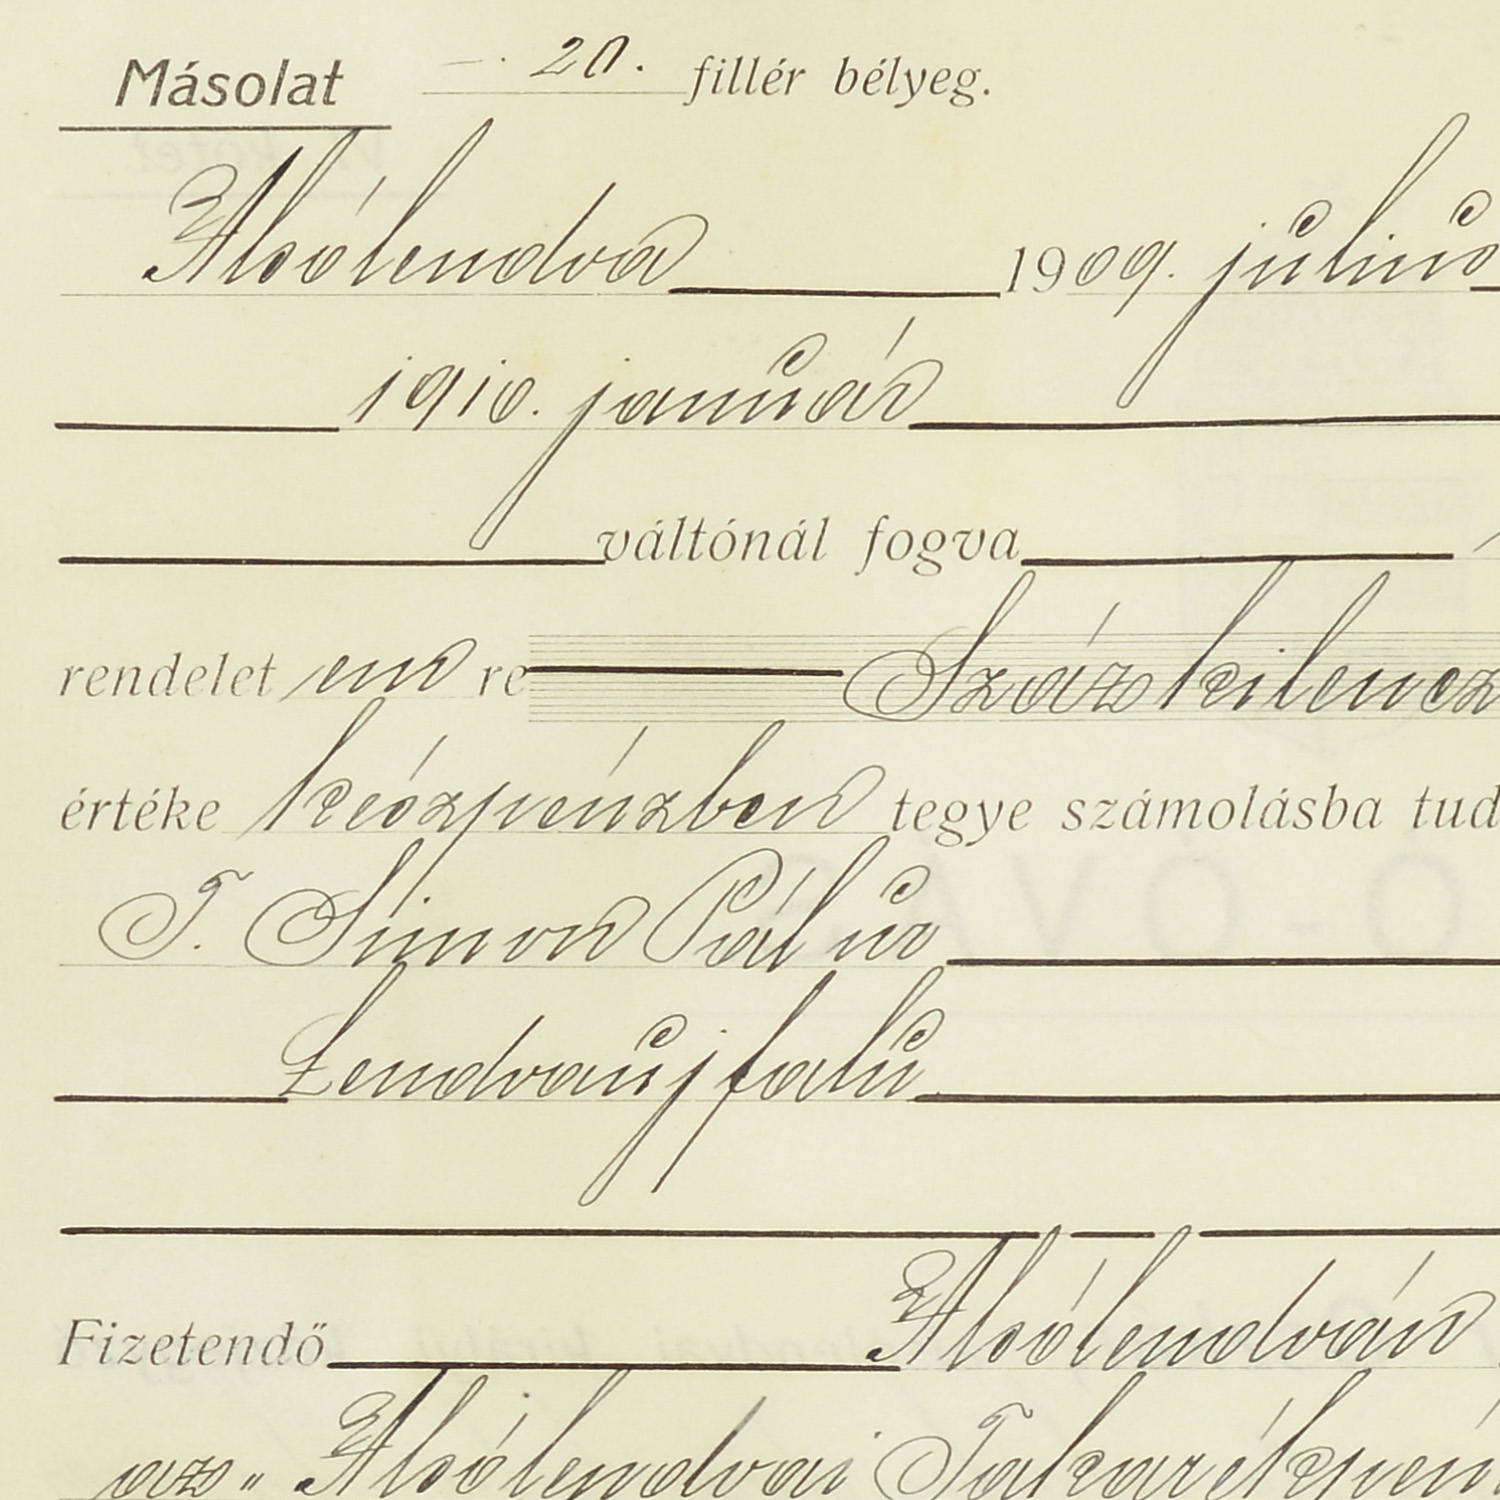 Másolat 20. fillér bélyeg.
Alsólendva 1909. július
1910. január
váltónál fogva
rendelet en re Százkilencz
értéke készpénzben tegye számolásba tud
T. Simon Pál úr
Lendvaujfalu
Fizetendő Alsólendván
az „Alsólendvai Takarékpén